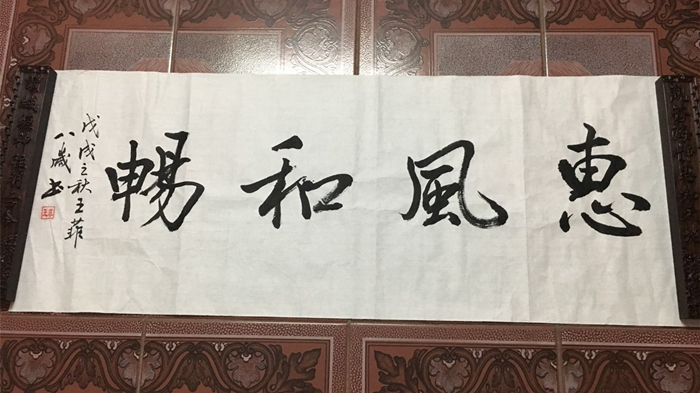 惠風和暢
戊戌之秋王菲
八歲書